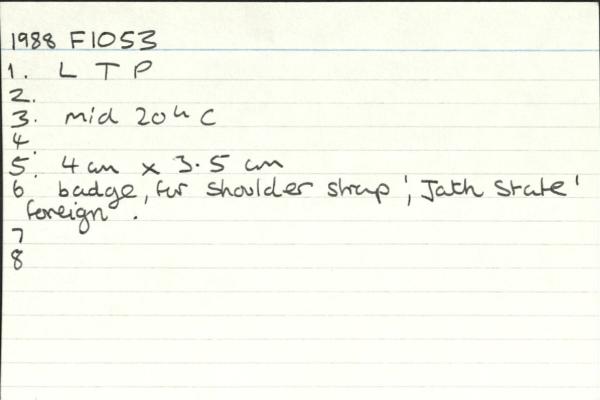 1988 F1053
1. L T P
2.
3. mid 20th C
4
5. 4 cm x 3.5 cm
6 badge, for shoulder strap, 'Jath State'
foreign.
7
8